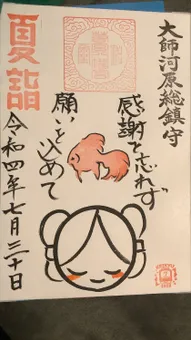 大師河原総鎮守
感謝を忘れず
願いを込めて
夏詣
令和四年七月三十日